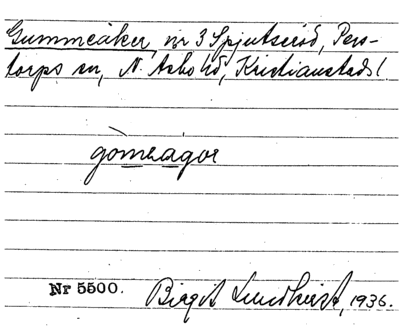 Gummeåker, nr 3 Spjutseröd, Pers-
torps sn, N. Åsbo hd, Kristianstads l.
gòmeågọr
Nr 5500.
Birgit Lundkvist, 1936.